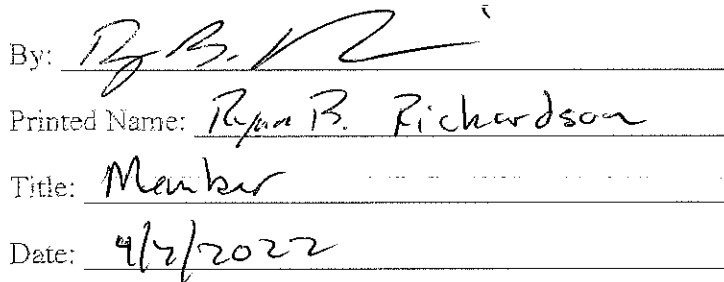 By:
Printed Name: Ryan B. Richardson
Title: Member
Date: 9/2/2022